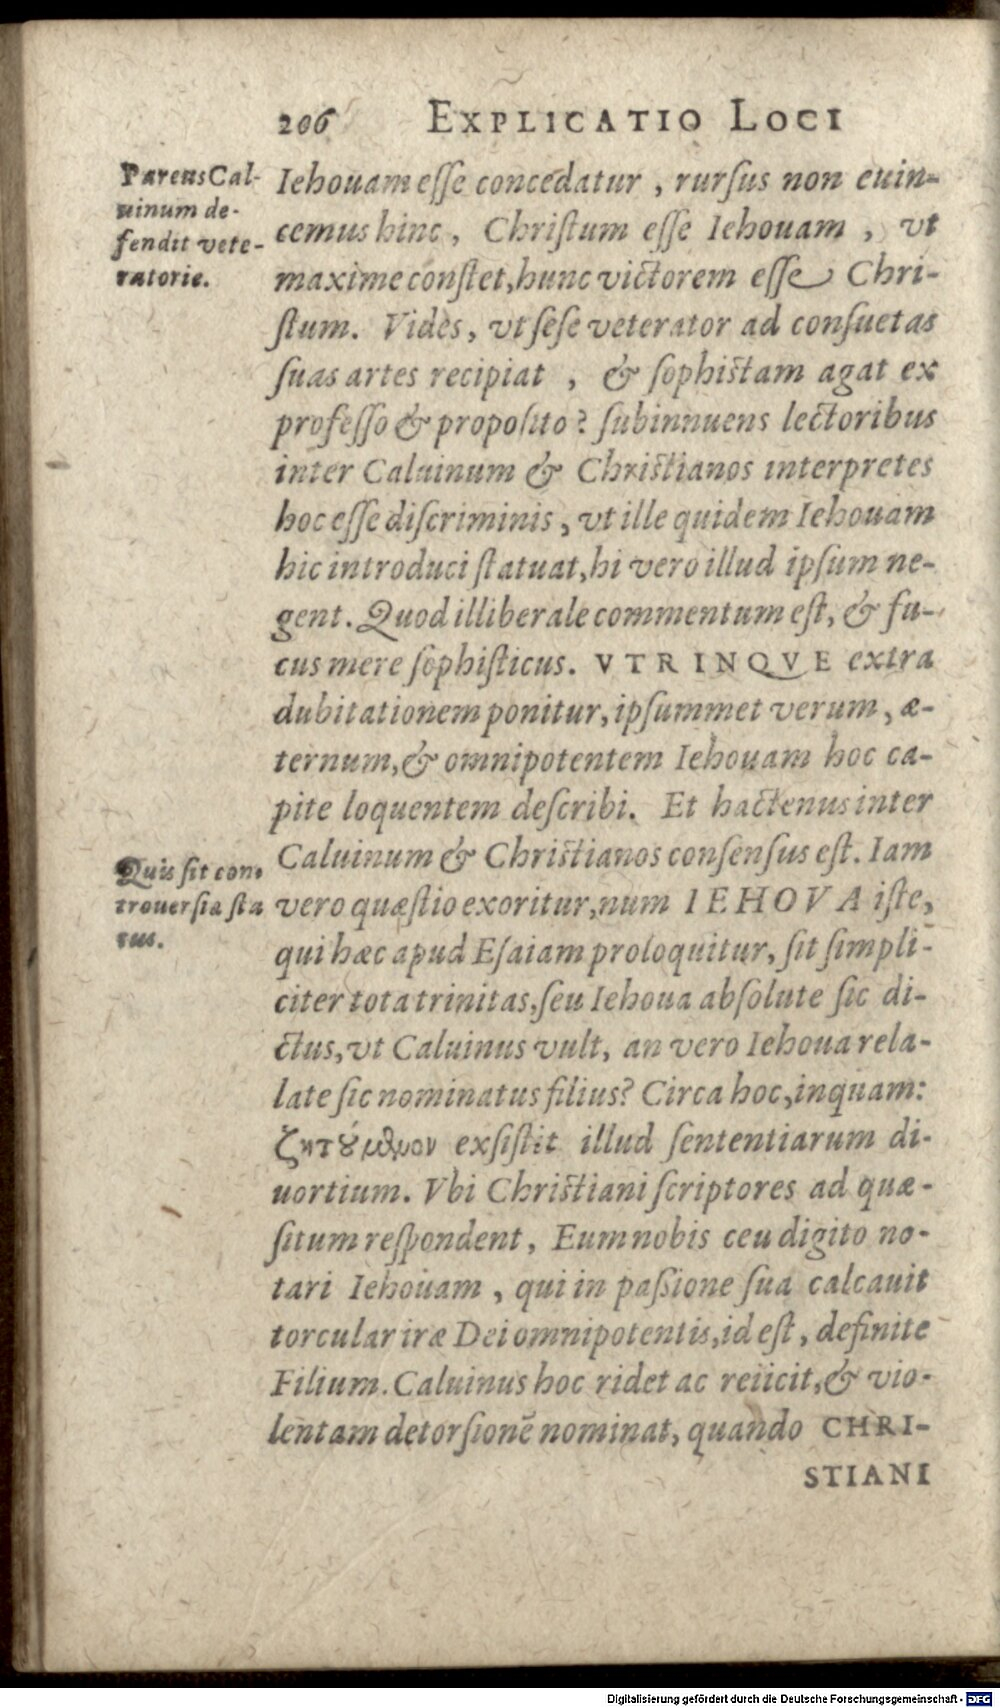 206 EXPLICATIO LOCI
Parens Cal-
uinum de-
fendit vete-
ratorie.
Iehouam eſſe concedatur, rurſus non euin-
cemus hinc, Chriſtum eſſe Iehouam, vt
maxime conſtet, hunc victorem eſſe Chri-
ſtum. Vides, vt ſeſe veterator ad conſuetas
ſuas artes recipiat, & ſophiſtam agat ex
profeſſo & propoſito? ſubinnuens lectoribus
inter Caluinum & Chriſtianos interpretes
hoc eſſe diſcriminis, vt ille quidem Iehouam
hic introduci ſtatuat, hi vero illud ipſum ne-
gent. Quod illiberale commentum eſt, & fu-
cus mere ſophiſticus. VTRINQVE extra
dubitationem ponitur, ipſummet verum, æ-
ternum, & omnipotentem Iehouam hoc ca-
pite loquentem deſcribi. Et hactenus inter
Caluinum & Chriſtianos conſenſus eſt. Iam
Quis ſit con-
trouerſia ſta
tus.
vero quæſtio exoritur, num IEHOVA iſte,
qui hæc apud Eſaiam proloquitur, ſit ſimpli-
citer tota trinitas, ſeu Iehoua abſolute ſic di-
ctus, vt Caluinus vult, an vero Iehoua rela-
late ſic nominatus filius? Circa hoc, inquam:
ζητούμενον exſiſtit illud ſententiarum di-
uortium. Vbi Chriſtiani ſcriptores ad quæ-
ſitum reſpondent, Eum nobis ceu digito no-
tari Iehouam, qui in paſsione ſua calcauit
torcular iræ Dei omnipotentis, id eſt, definite
Filium. Caluinus hoc ridet ac reiicit, & vio-
lentam detorſionē nominat, quando CHRI-
STIANI
Digitalisierung gefördert durch die Deutsche Forschungsgemeinschaft - DFG